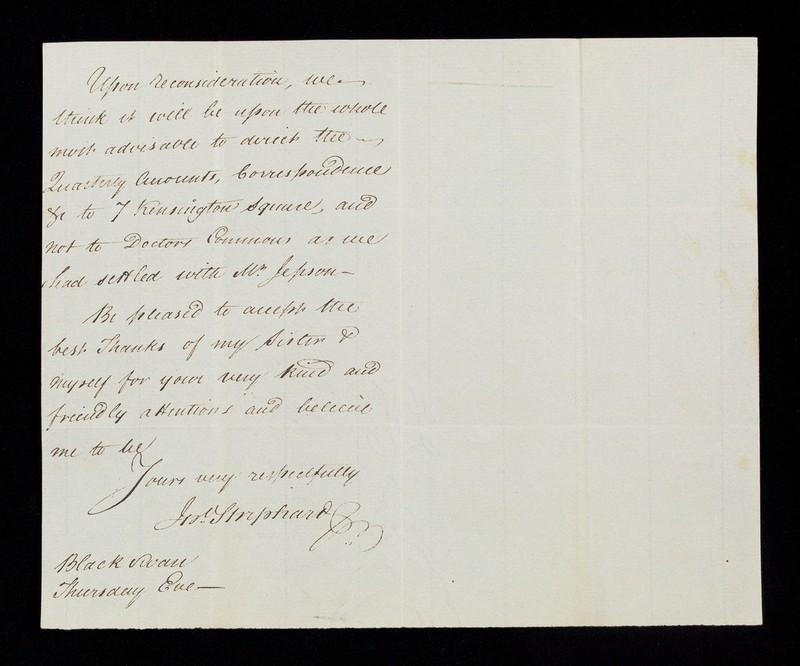 Upon reconsideration, we
think it will be upon the whole
most advisable to direct the
Quarterly Amounts, Correspondence
&c to 7 Kensington Square, and
not to Doctors Commons as we
had settled with Mr Jepson—
Be pleased to accept the
best Thanks of my Sister &
myself for your very kind and
friendly attentions and believe
me to be
Yours very respectfully
Shephard
Black Swan
Thursday Eve—